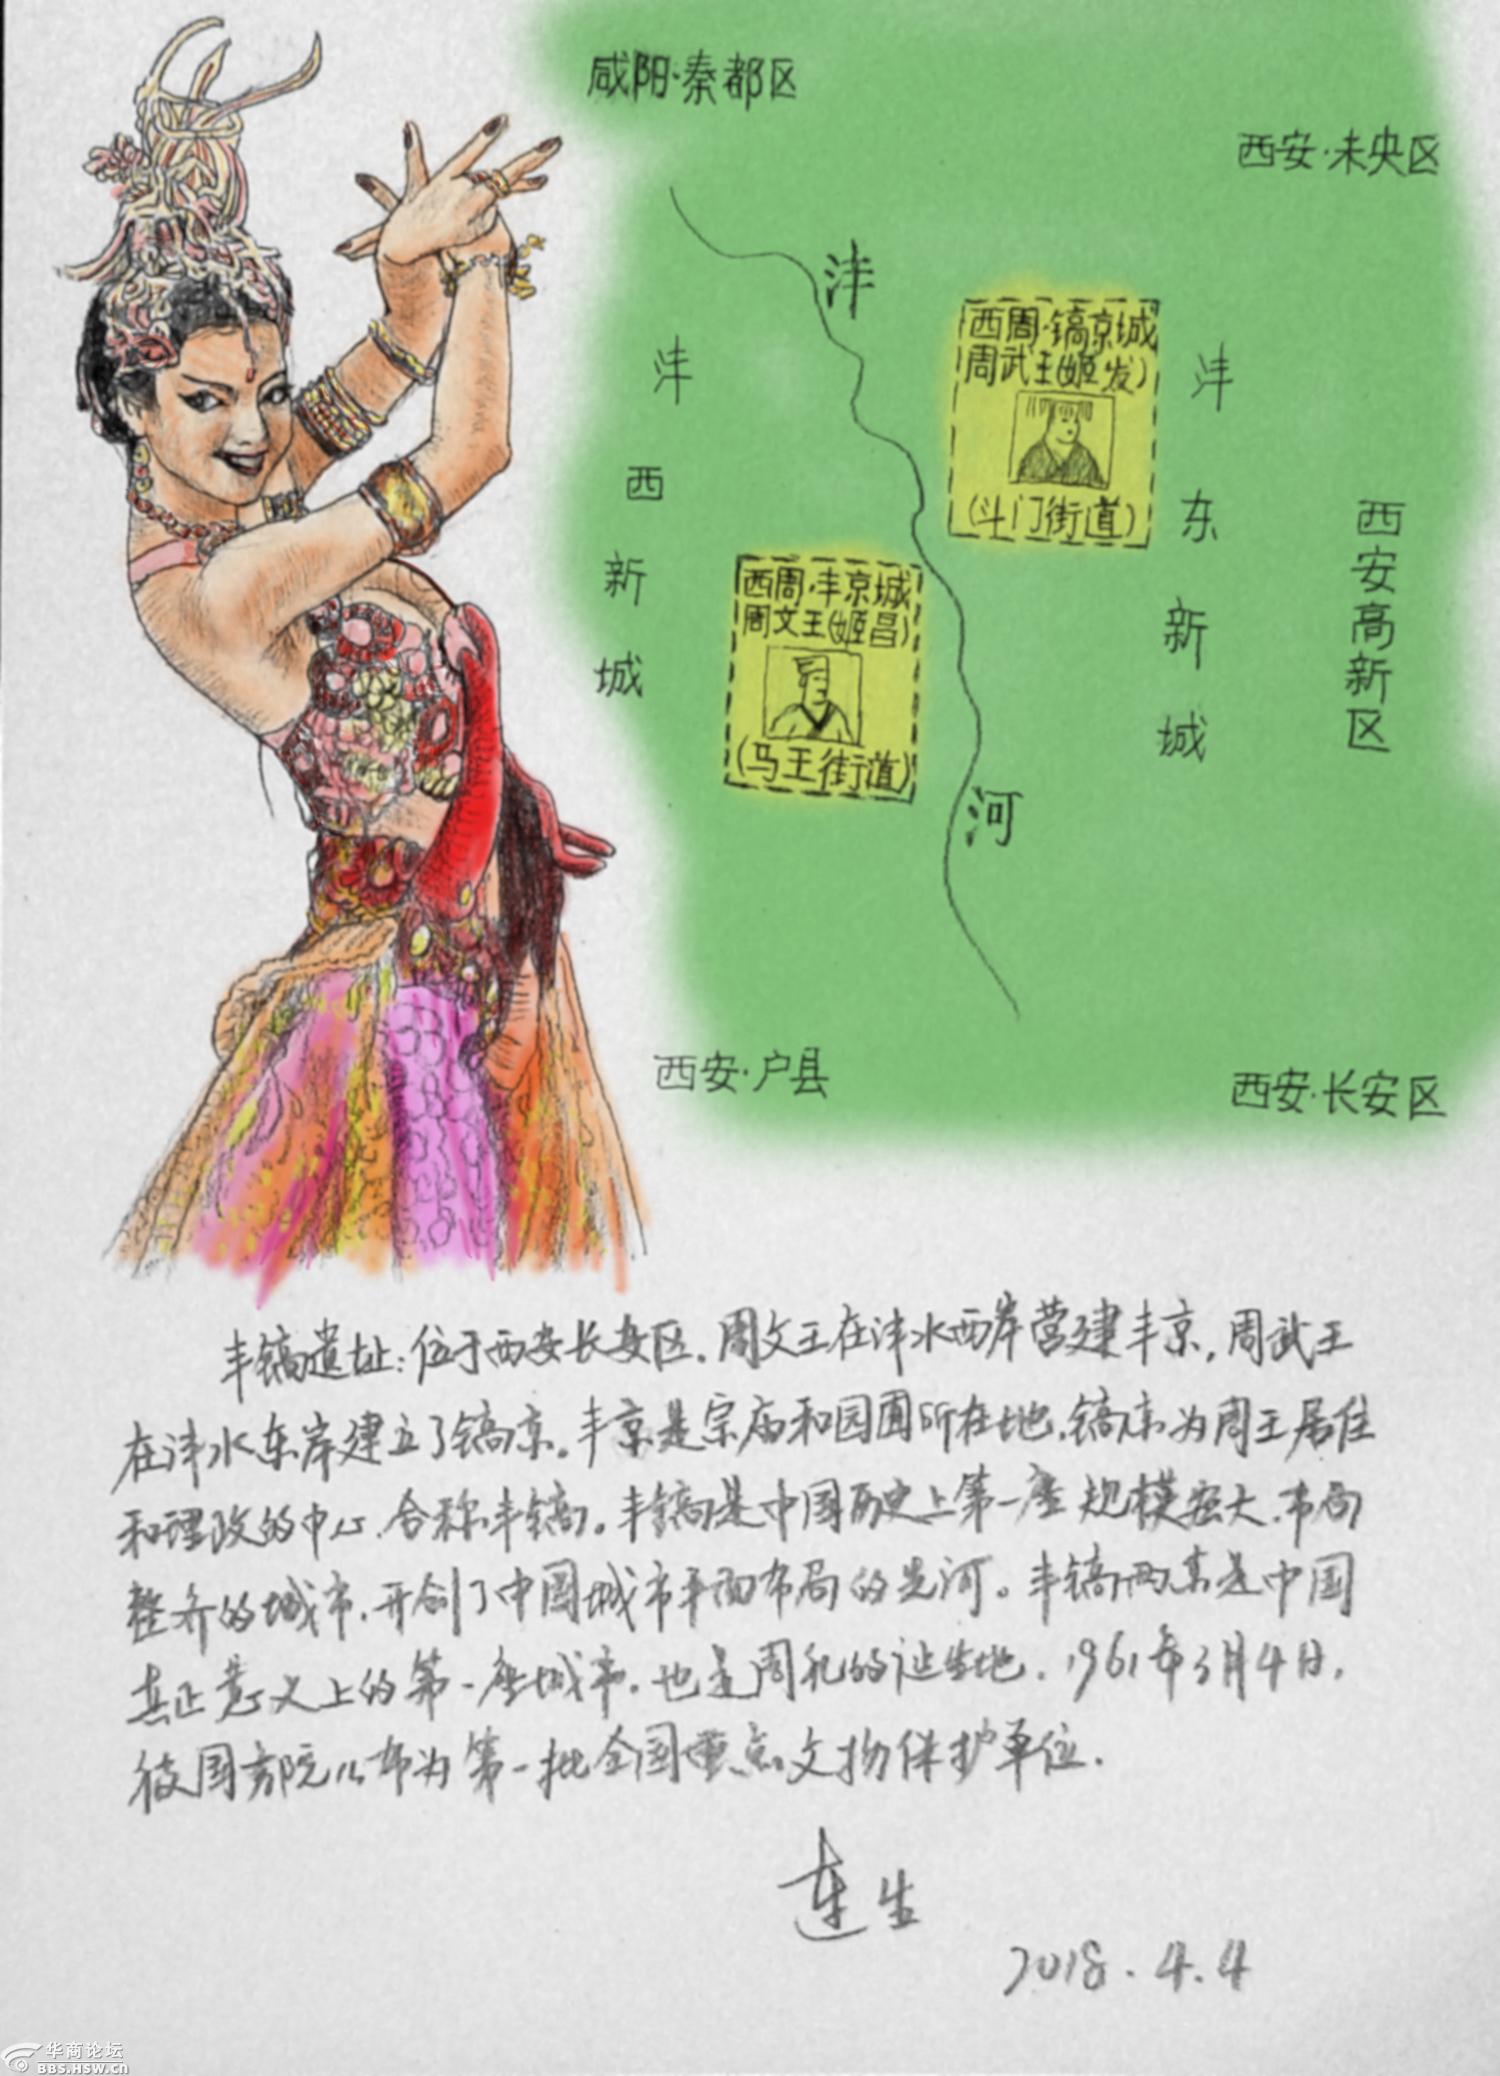 咸阳·秦都区
西安·未央区
沣
河
西周·镐京城
周武王(姬发)
(斗门街道)
西周·丰京城
周文王(姬昌)
(马王街道)
沣西新城
沣东新城
西安高新区
西安·户县
西安·长安区
丰镐遗址:位于西安长安区。周文王在沣水西岸营建丰京,周武王
在沣水东岸建立了镐京。丰京是宗庙和园囿所在地,镐京为周王居住
和理政的中心,合称丰镐。丰镐是中国历史上第一座规模宏大、布局
整齐的城市,开创了中国城市平面布局的先河。丰镐两京是中国
真正意义上的第一座城市。也是周礼的诞生地。1961年3月4日,
被国务院公布为第一批全国重点文物保护单位.
莲生
2018.4.4
华商论坛
BBS.HSW.CN